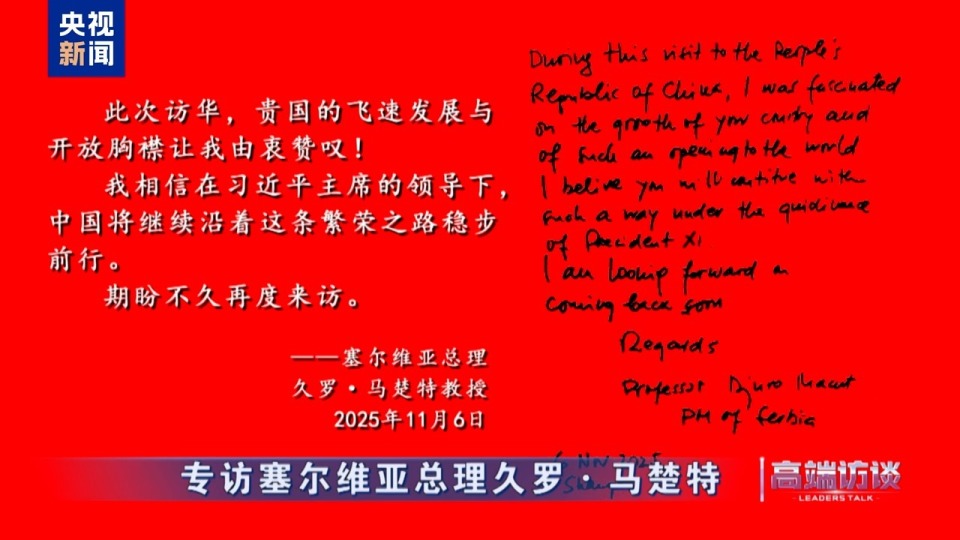 央视
新闻
此次访华，贵国的飞速发展与
开放胸襟让我由衷赞叹！
我相信在习近平主席的领导下，
中国将继续沿着这条繁荣之路稳步
前行。
期盼不久再度来访。
——塞尔维亚总理
久罗·马楚特教授
2025年11月6日
During this visit to the People's
Republic of China, I was fascinated
on the growth of your country and
of such an opening to the world
I belive you will continue with
such a way under the guidivance
of President Xi
I am looking forward on
coming back soon
Regards
Professor Djuro Macut
PM of Serbia
6 Nov 2025
专访塞尔维亚总理久罗·马楚特
高端访谈
LEADERS TALK